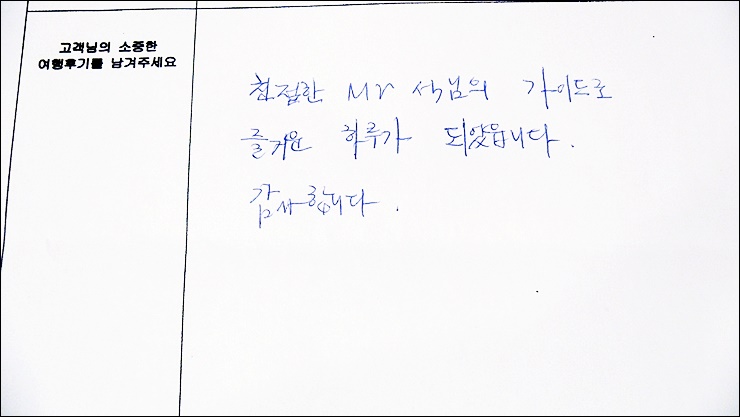 고객님의 소중한
여행후기를 남겨주세요
친절한 Mr 석님의 가이드로
즐거운 하루가 되었읍니다.
감사합니다.